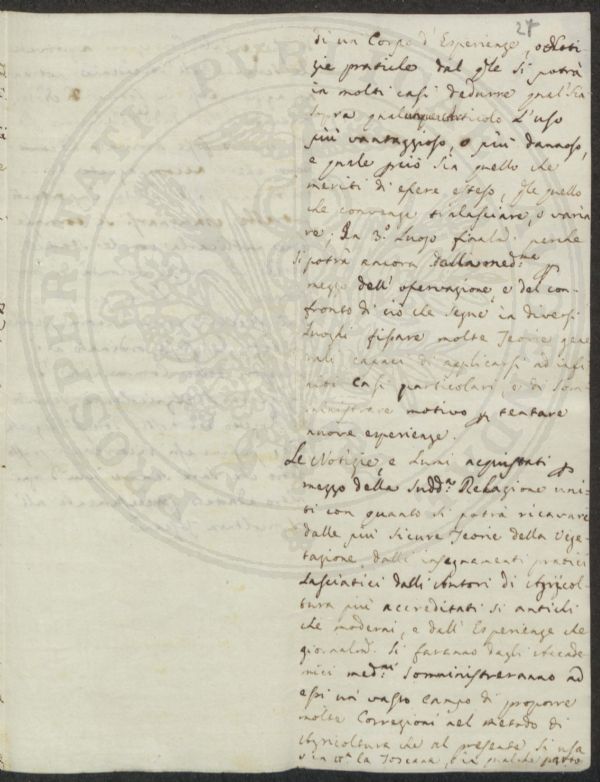 27
di un Corpo d'Esperienze, o Noti
zie pratiche dal q̃le si potrà
in molti casi dedurre qual sia
sopra qualunque Articolo L'uso
più vantaggioso, o più dannoso,
e quale perciò sia quello che
meriti di essere esteso, q̃le quello
che convenga tralasciare, o varia
re; In 3.º Luogo finalm. perche
si potrà ancora dalla med.ma p
mezzo dell'osservazione, e del con-
fronto di ciò che segue in diversi
Luoghi fissare molte Teorie gene
rali capaci di applicarsi ad infi
niti Casi particolari, e di Som-
ministrare motivo p tentare
nuove esperienze.
Le Notizie, e Lumi acquistati p
mezzo della Sudd.ª Relazione uni-
ti con quanto si potrà ricavare
dalle più sicure Teorie della Vege-
tazione, dalli insegnamenti pratici
Lasciatici dalli Autori di Agricol-
tura più accreditati si antichi
che moderni, e dall'Esperienze che
giornalm. si faranno dagli Accade
mici med.mi Somministreranno ad
essi un vasto campo di proporre
molte Correzioni nel metodo di
Agricoltura che al presente si usa
la Toscana, qualche
PROSPERITATI PUBLICAE